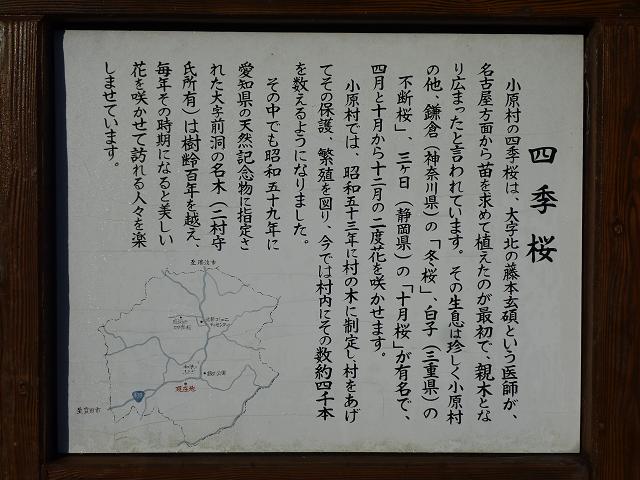 四季桜
小原村の四季桜は、大字北の藤本玄碩という医師が、
名古屋方面から苗を求めて植えたのが最初で、親木とな
り広まったと言われています。その生息は珍しく小原村
の他、鎌倉（神奈川県）の「冬桜」、白子（三重県）の「
不断桜」、三ヶ日（静岡県）の「十月桜」が有名で、
四月と十月から十二月の二度花を咲かせます。
小原村では、昭和五十三年に村の木に制定し、村をあげ
てその保護、繁殖を図り、今では村内にその数約四千本
を数えるようになりました。
その中でも昭和五十九年に
愛知県の天然記念物に指定さ
れた大字前洞の名木（二村守
氏所有）は樹齢百年を越え、
毎年その時期になると美しい
花を咲かせて訪れる人々を楽
しませています。
至瑞浪市
現在地
至豊田市